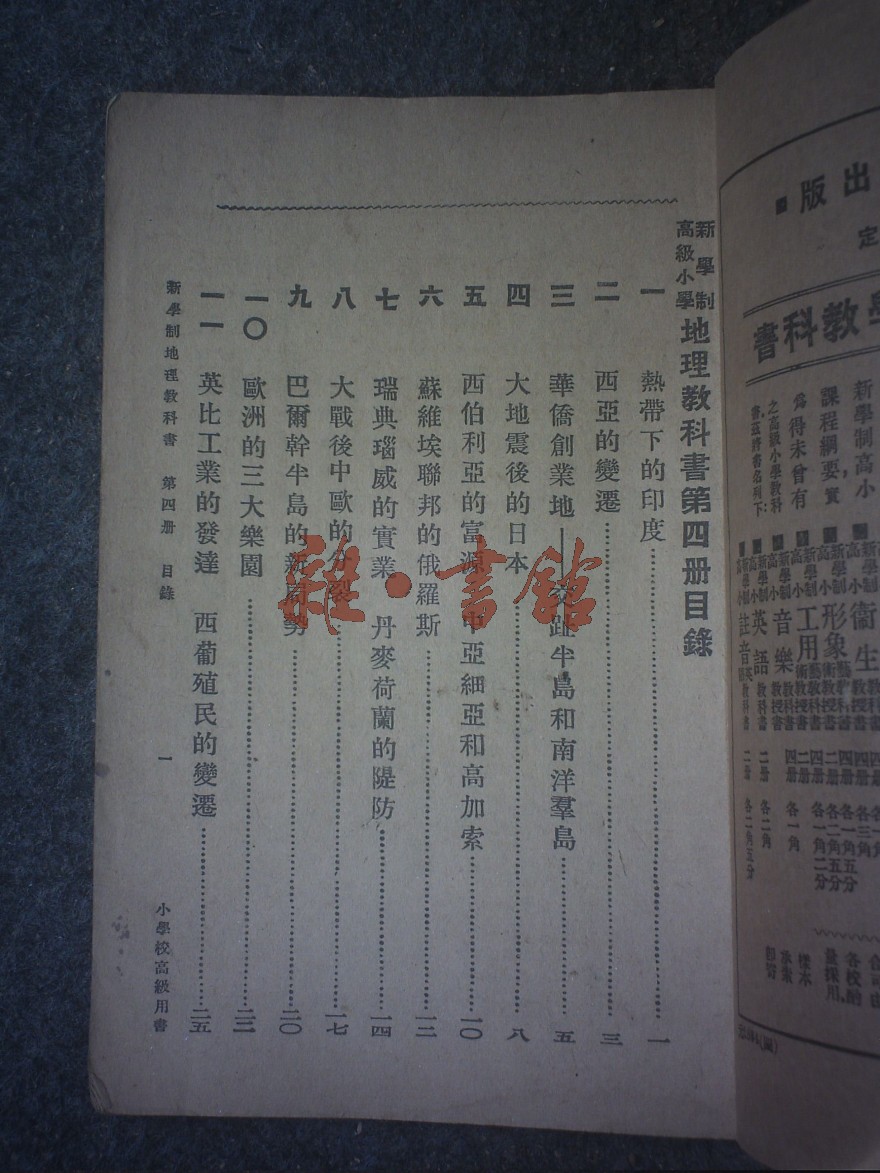 出版
定
學教科書
新學制高小
課程綱要,實
爲得未曾有
之高級小學教科
書.茲將書名列下:
新學制高小 衞生 教科書 教授書 四册 各一角
新學制高小 形象藝術 教科書 教授書
新學制高小 工用藝術 教科書 教授書
新學制高小 音樂 教科書 教授書 四册 各一角
新學制高小 英語 教科書 二册 各二角
新學制高小 註音 英語 教科書 二册 各二角五分
各校
量採用,
樣本
承索
卽寄
新學制高級小學 地理教科書第四册目錄
一 熱帶下的印度……一
二 西亞的變遷……三
三 華僑創業地——交趾半島和南洋羣島……五
四 大地震後的日本……八
五 西伯利亞的富源 中亞細亞和高加索……一〇
六 蘇維埃聯邦的俄羅斯……一二
七 瑞典瑙威的實業 丹麥荷蘭的隄防……一四
八 大戰後中歐的分裂……一七
九 巴爾幹半島的新局勢……二〇
一〇 歐洲的三大樂園……二二
一一 英比工業的發達 西葡殖民的變遷……二五
新學制地理教科書 第四册 目錄 一 小學校高級用書
雜·書館